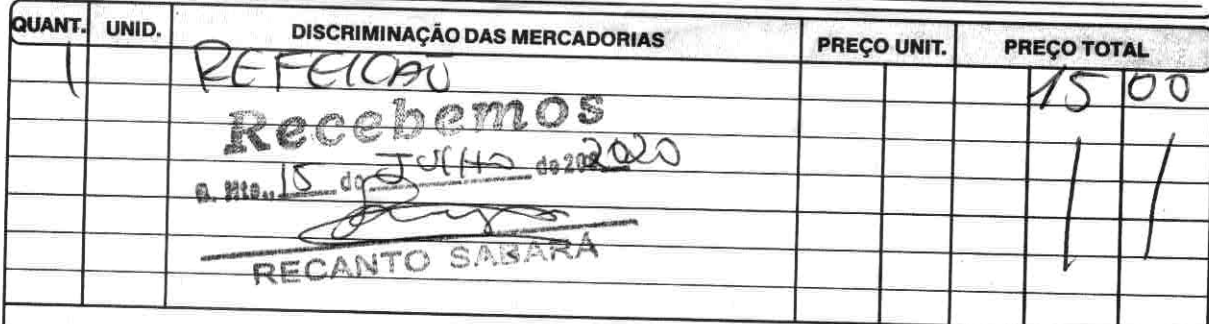 QUANT. UNID. DISCRIMINAÇÃO DAS MERCADORIAS PREÇO UNIT. PREÇO TOTAL
1 REFEICAO 15 00
Recebemos
15 de JULHO de 20 2020
RECANTO SABARÁ